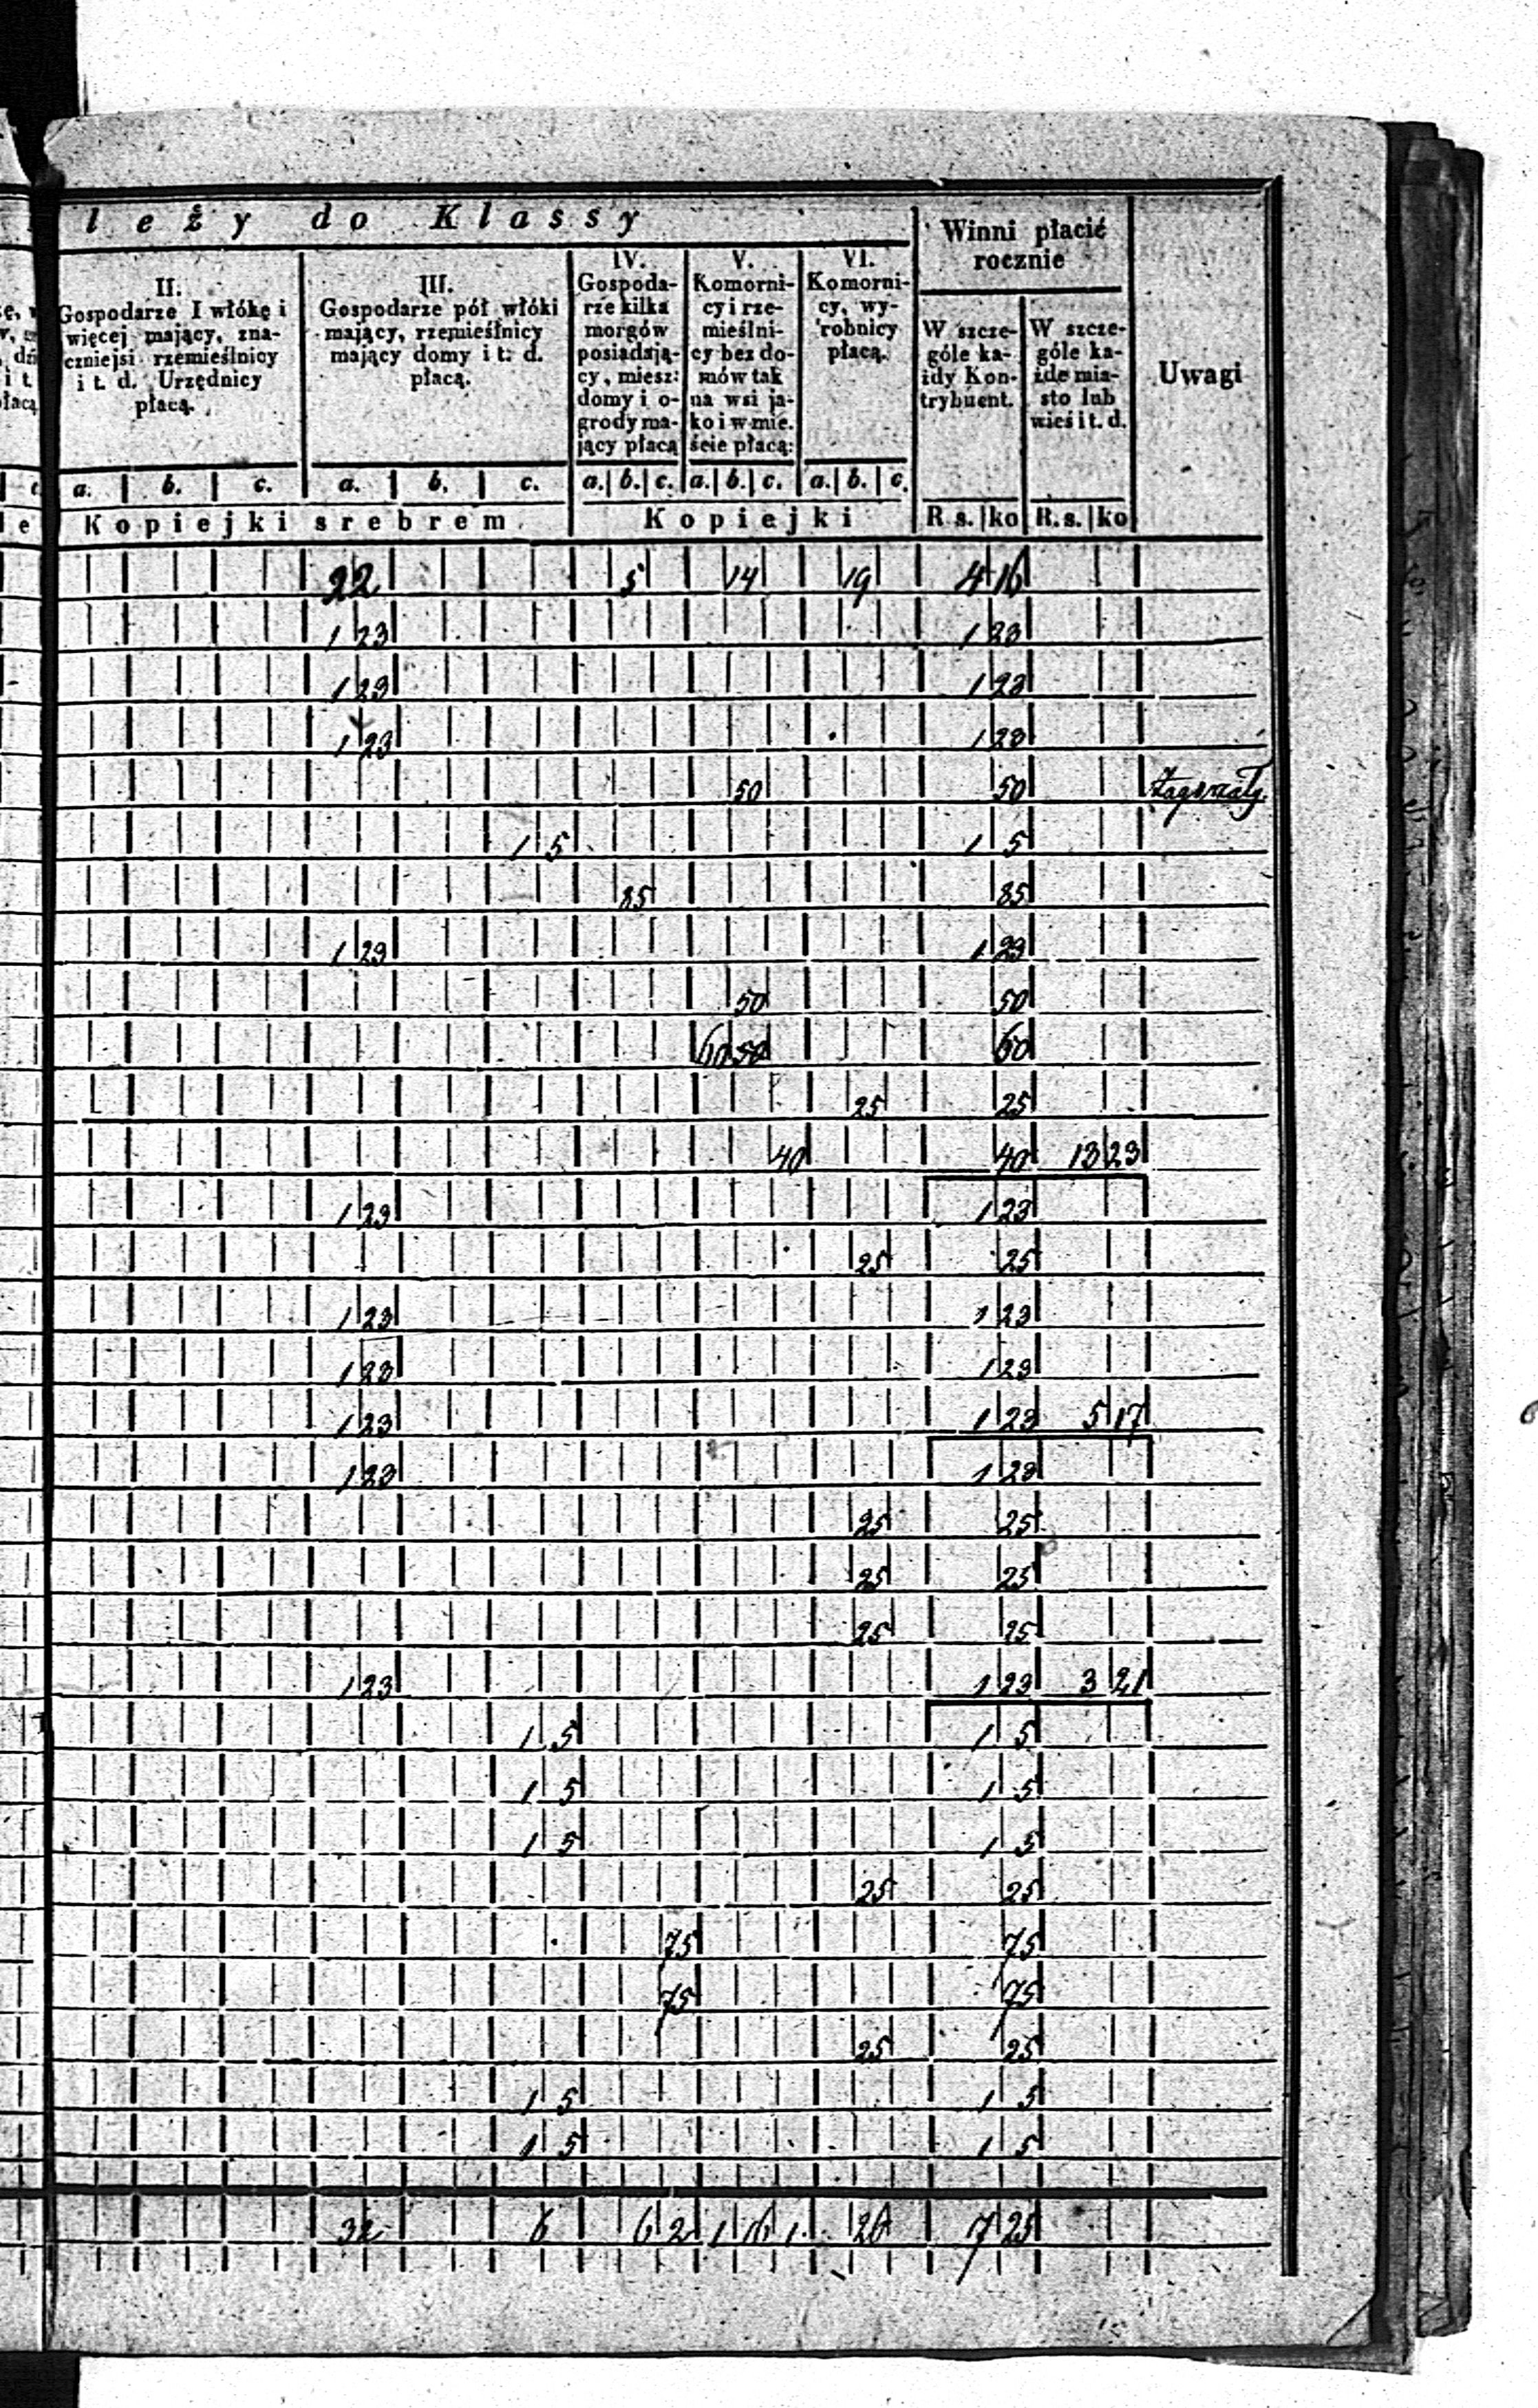 leży do Klassy
Winni płacić rocznie
Uwagi
II.
Gospodarze I włókę i
więcej mający, zna-
czniejsi rzemieślnicy
i t. d. Urzędnicy
płacą.
III.
Gospodarze pół włóki
mający, rzemieślnicy
mający domy i t: d.
płacą.
IV.
Gospoda-
rze kilka
morgów
posiadają-
cy, miesz:
domy i o-
grody ma-
jący płacą
V.
Komorni-
cy i rze-
mieślni-
cy bez do-
mów tak
na wsi ja-
ko i w mie.
ście płacą:
VI.
Komorni-
cy, wy-
robnicy
płacą.
W szcze-
góle ka-
żdy Kon-
trybuent.
W szcze-
góle ka-
żde mia-
sto lub
wieś i t. d.
a. b. c. a. b. c. a. b. c. a. b. c. a. b. c.
Kopiejki srebrem Kopiejki R s. ko R. s. ko
22 5 14 19 4 16
1 23 1 23
1 23 1 23
1 23 1 23
50 50
1 5 1 5
85 85
1 23 1 23
50 50
60 50 60
25 25
40 40 13 23
1 23 1 23
25 25
1 23 1 23
1 23 1 23
1 23 1 23 5 17
1 23 1 23
25 25
25 25
25 25
1 23 1 23 3 21
1 5 1 5
1 5 1 5
1 5 1 5
25 25
75 75
75 75
25 25
1 5 1 5
1 5 1 5
32 6 6 2 1 16 1 26 7 25